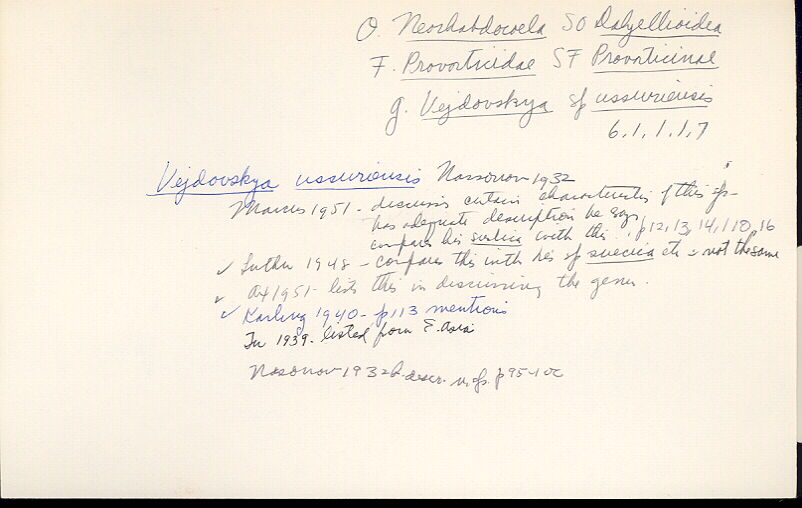 O. Neorhabdocoela SO Dalyellioidea
F. Provorticidae SF Provorticinae
g. Vejdovskya sp ussuriensis
6,1,1,1,7
Vejdovskya ussuriensis Nassonov 1932
Marcus 1951 - discusses certain characteristics of this sp-
has adequate description he says
compares his suslica with this p12, 13, 14, 110, 16
✓ Luther 1948 - compares this with his sp suecica etc - not the same
✓ Ax 1951 - lists this in discussing the genus.
✓ Karling 1940 - p113 mentions
In 1939 - listed from E. Asia
Nasonov 1932b descr. n. sp. p 95-100